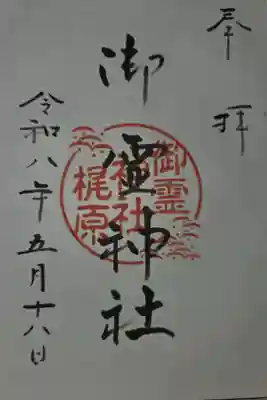 奉拝
御霊神社
御霊
神社
梶原
令和八年五月十八日